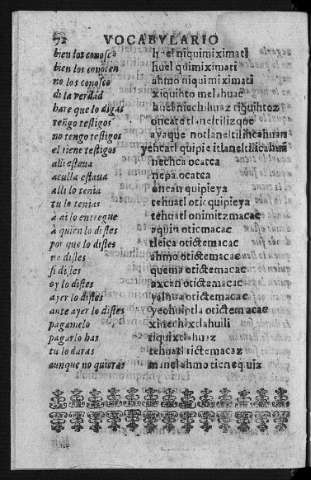 52 VOCABVLARIO
bien los conosco huel niquimiximati
bien los conocen huel quimiximati
no los conosco ahmo niquimiximati
di la verdad xiquinto melahuac
hare que lo digas
tengo testigos oncate tlaneltilizque
no tengo testigos ayaque notlaneltilihcahuan
el tiene testigos yehcatl quipie itlaneltilihcahuan
alli estaua nechca ocatca
aculla estaua nepa ocatca
alli lo tenia oncan quipieya
tu lo tenias tehuatl oticquipieya
a ti lo entregue tehuatl onimitzmacac
a quien lo distes aquin oticmacac
por que lo distes tleica otictemacac
no distes ahmo otictemacac
si distes quema otictemacac
oy lo distes axcan otictemacac
ayer lo distes yalhua otictemacac
ante ayer lo distes yeohuiptla otictemacac
pagamelo xinechixtlahuili
pagarlo has tiquixtlahuaz
tu lo daras tehuatl tictemacaz
aunque no quieras manelahmo ticnequiz